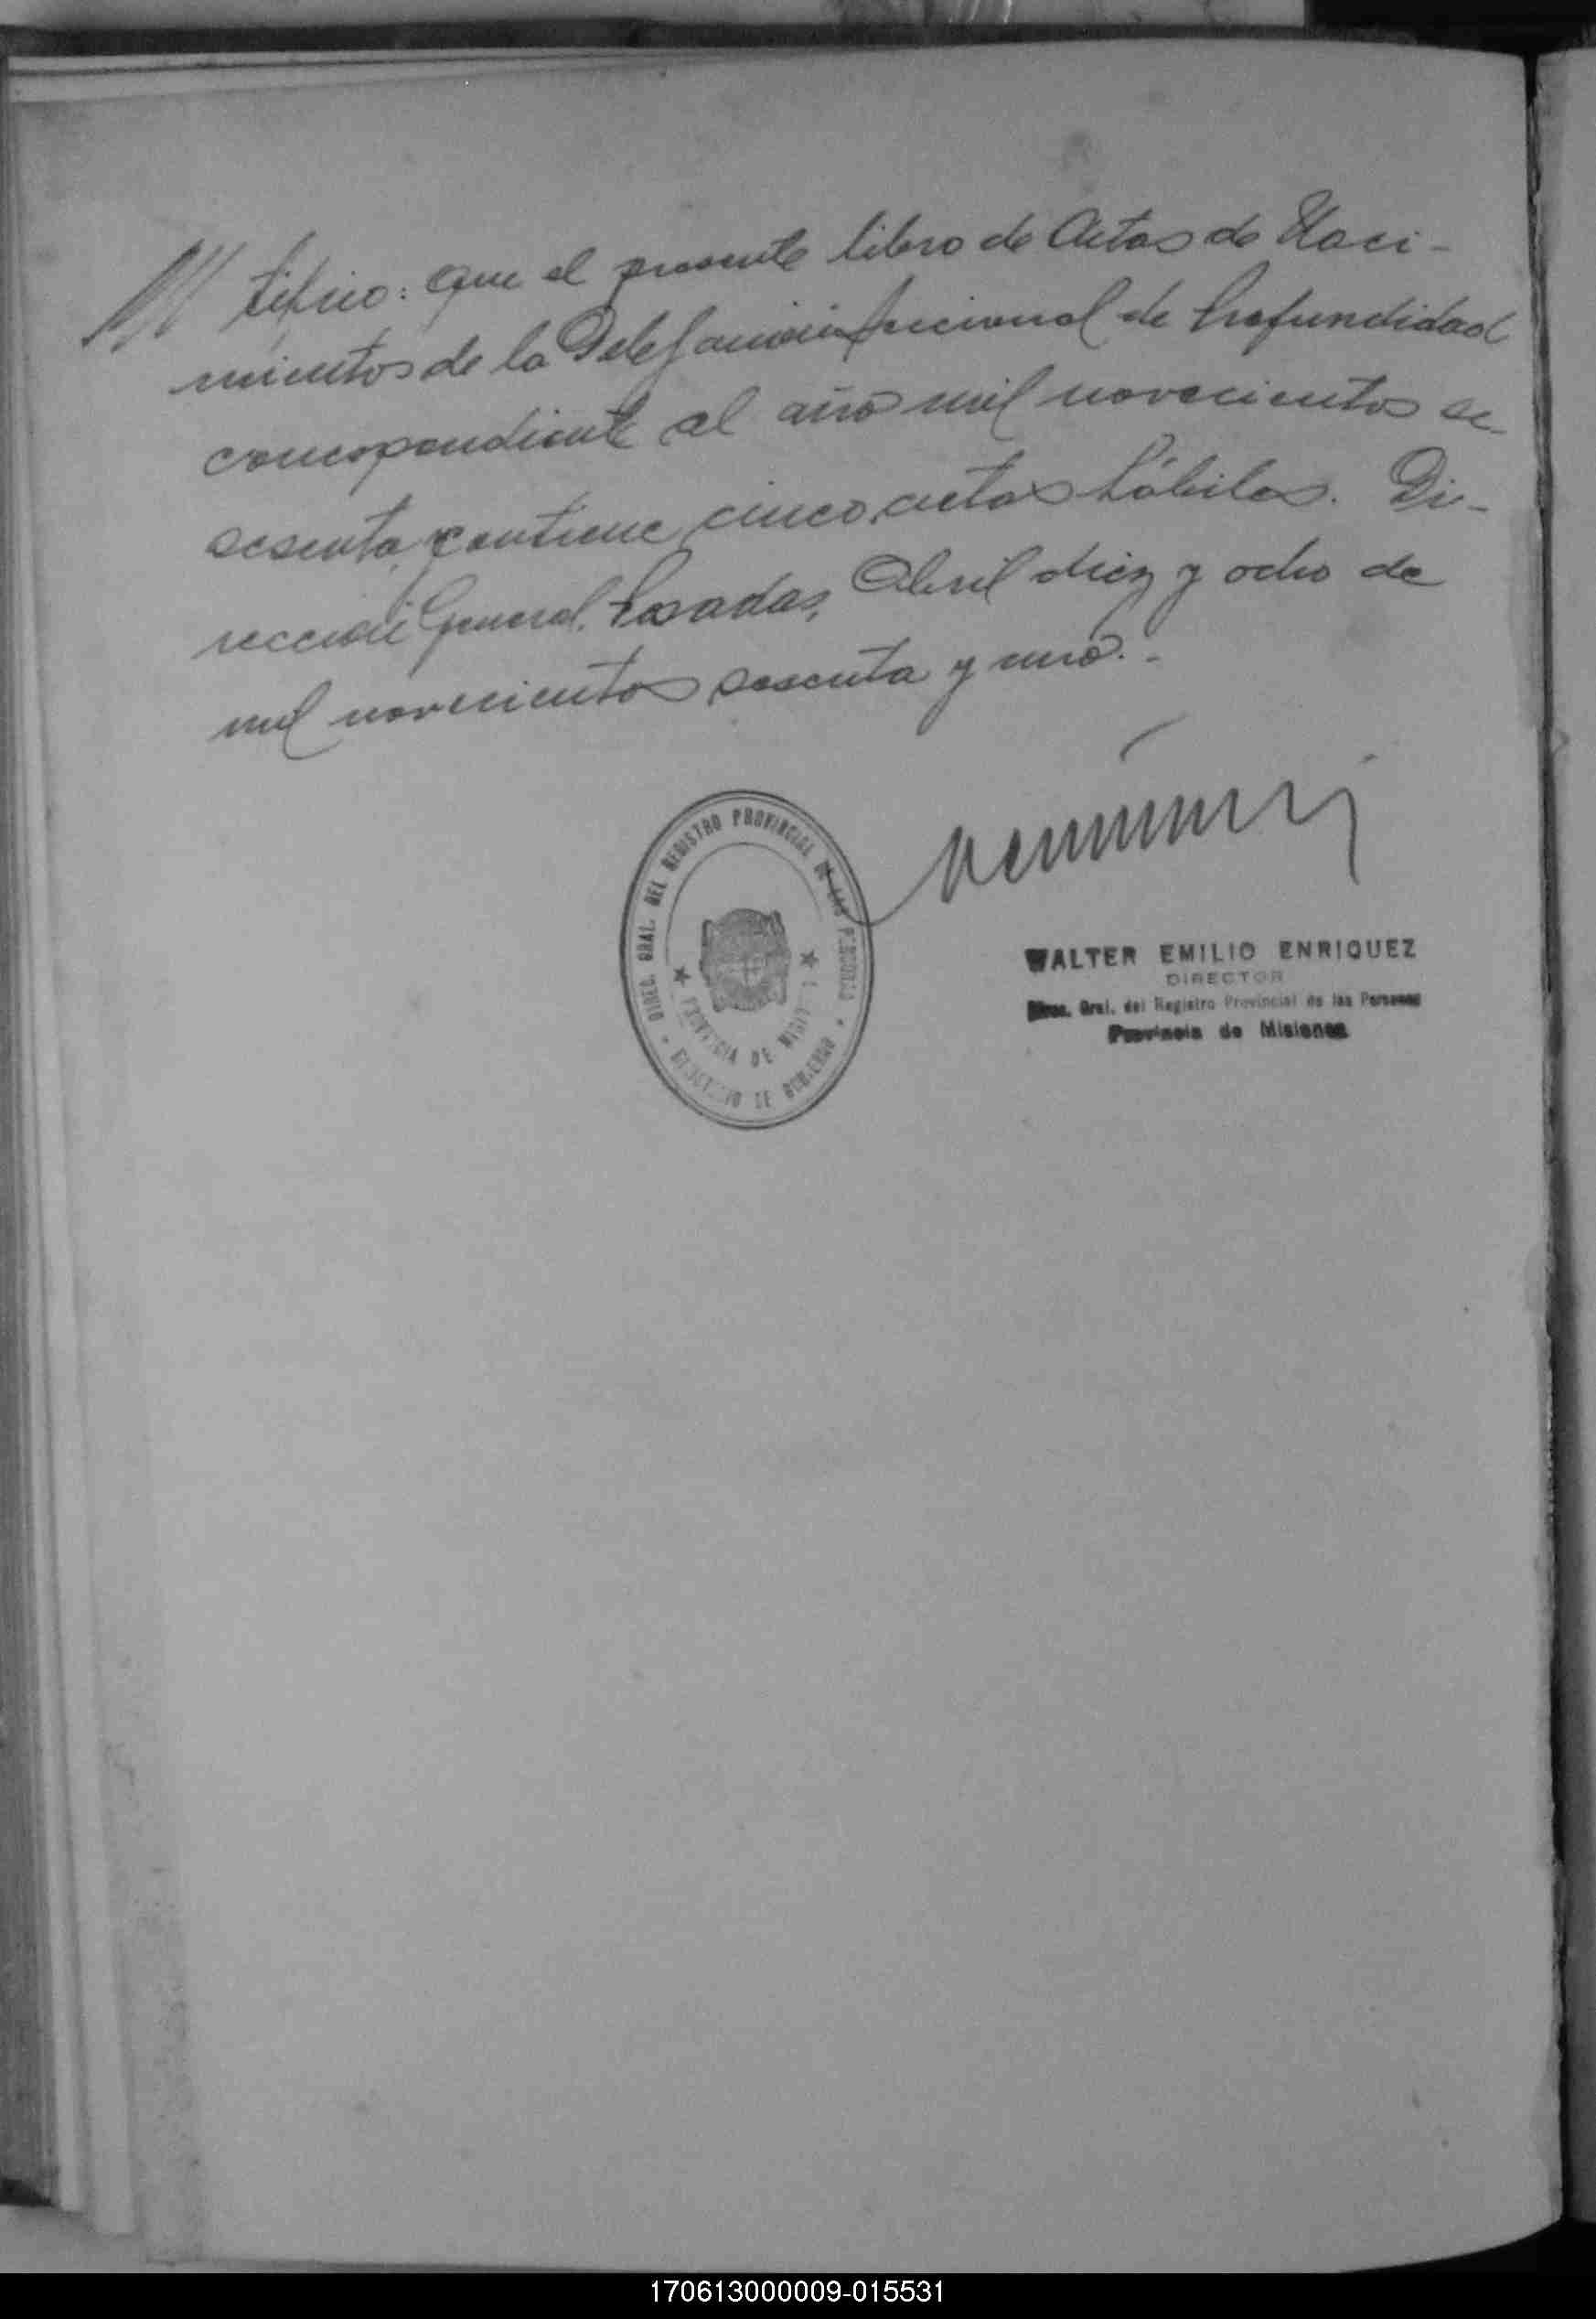 /// tifico: Que el presente libro de Actas de Naci-
mientos de la Delegación Seccional de Profundidad
correspondiente al año mil novecientos se-
sesenta, contiene cinco actas hábiles. Di-
rección General, Posadas, Abril diez y ocho de
mil novecientos sesenta y uno.-
DIREC. GRAL. DEL REGISTRO PROVINCIAL DE LAS PERSONAS
PROVINCIA DE MISIONES
MINISTERIO DE GOBIERNO
WALTER EMILIO ENRIQUEZ
DIRECTOR
Direc. Gral. del Registro Provincial de las Personas
Provincia de Misiones
170613000009-015531